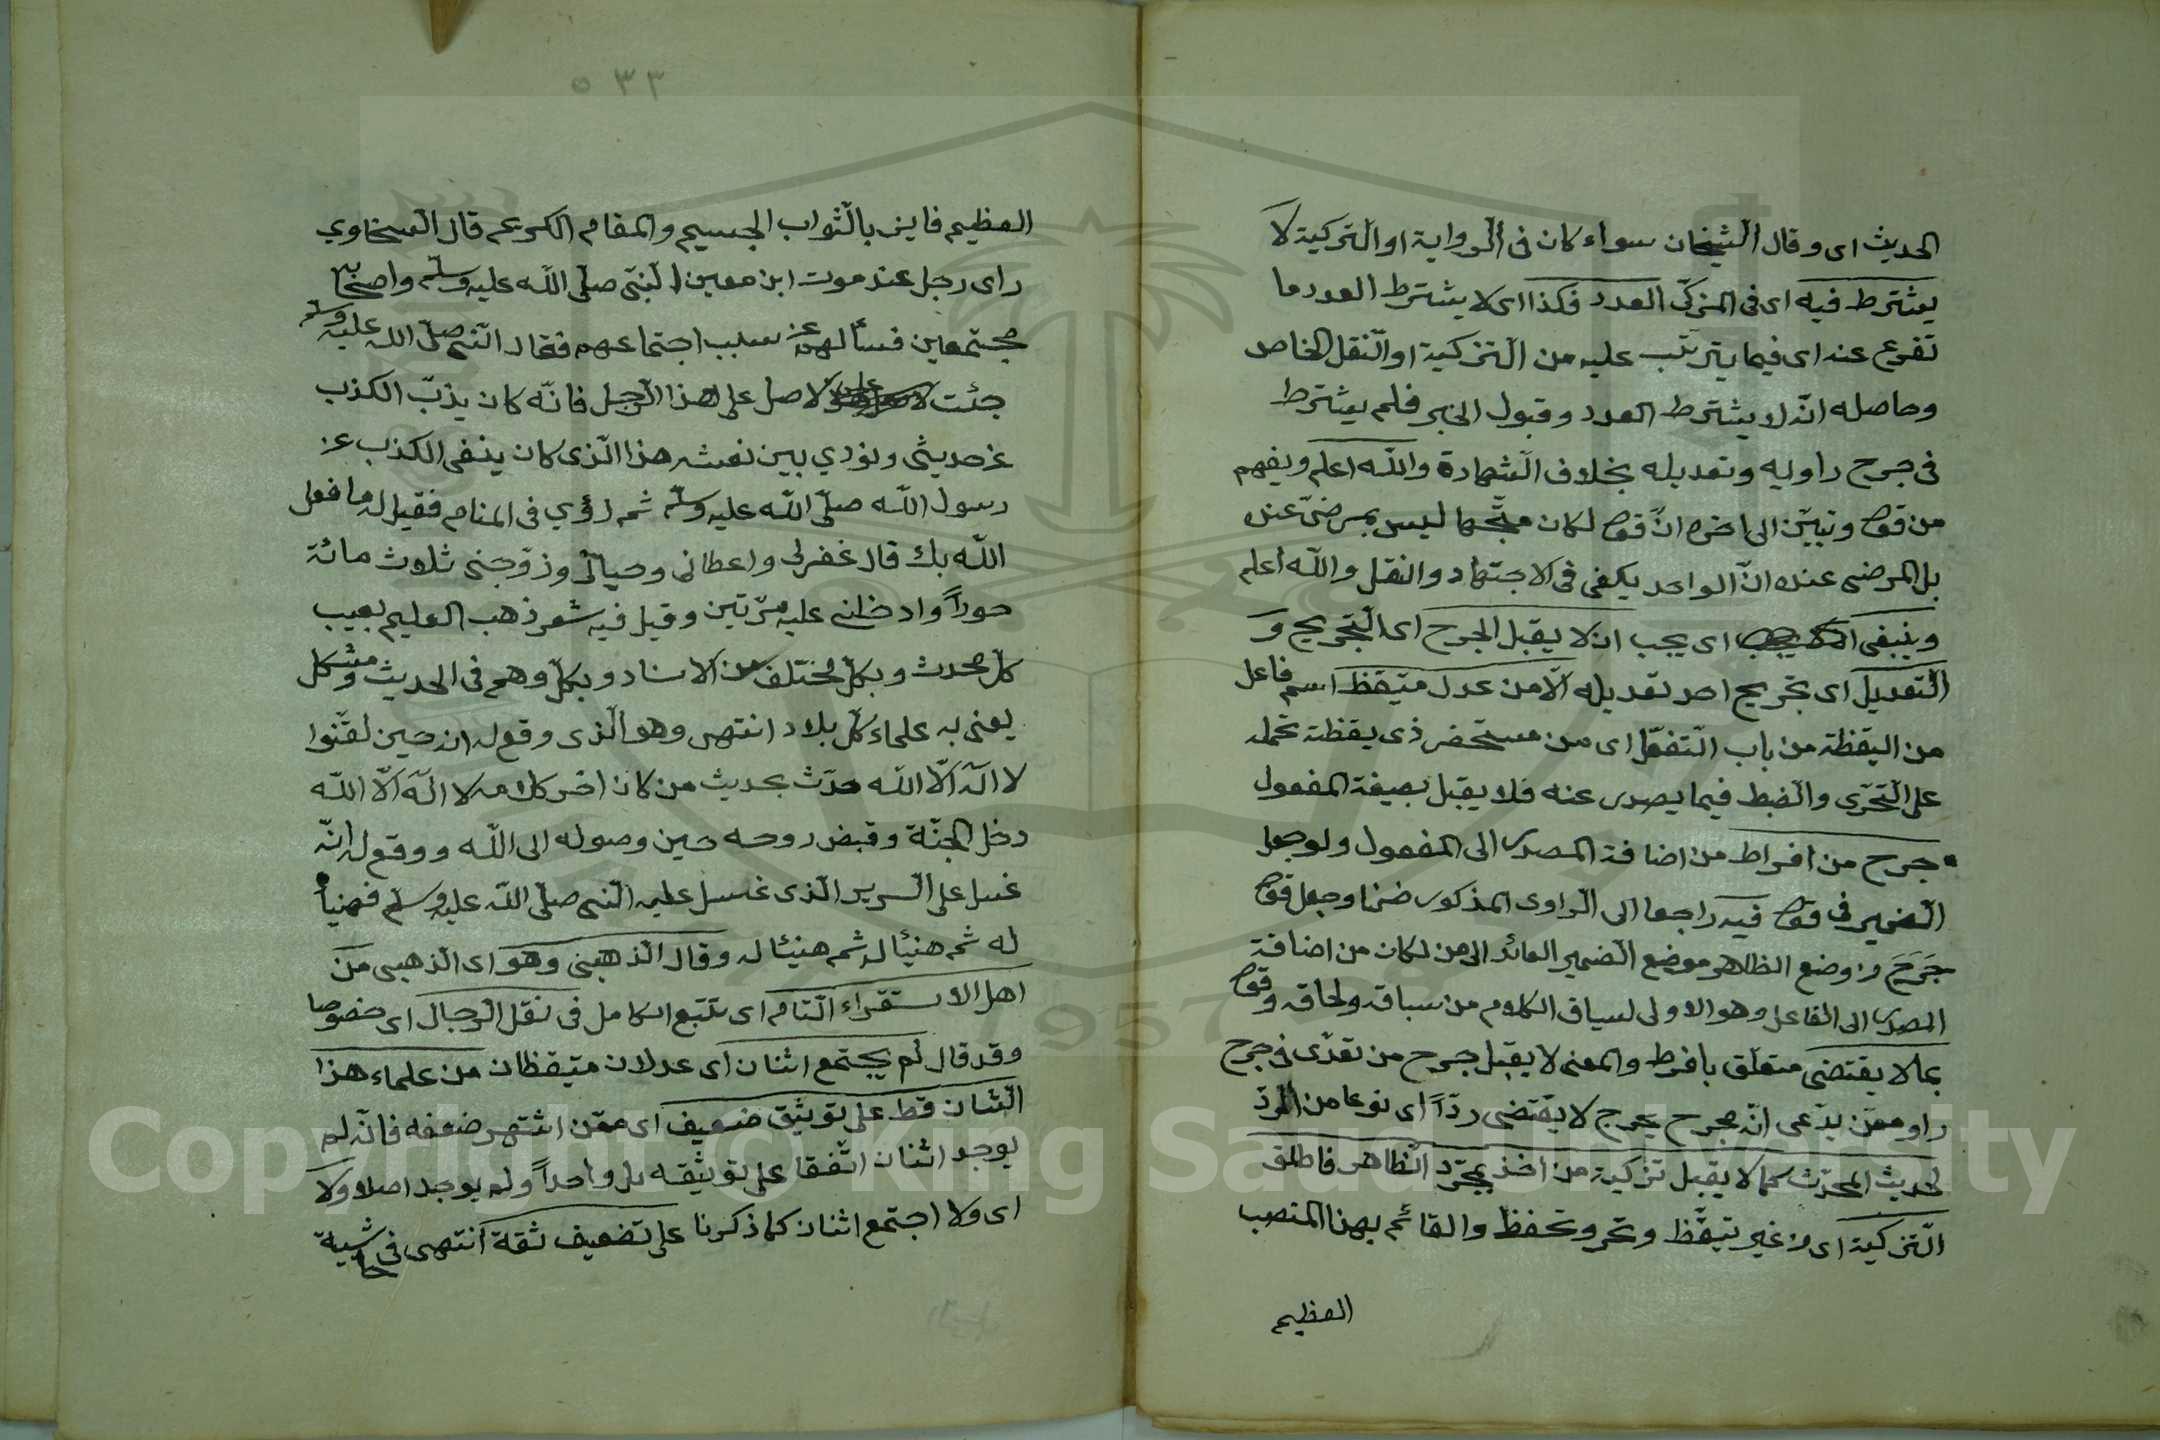 الحديث اى وقال الشيخان سواء كان فى الرواية او التزكية لا
يشترط فيه اى فى المزكّى العدد فكذا اى لا يشترط العدد ما
تفرع عنه اى فيما يترتب عليه من التزكية او النقل الخاص
وحاصله انّه لا يشترط العدد وقبول الخبر فلم يشترط
فى جرح راويه وتعديله بخلاف الشهادة والله اعلم ويفهم
من قوله وتبيّن الى اخره انّ قوله لكان متّجها ليس بمرضىّ عنده
بل المرضى عنده انّ الواحد يكفى فى الاجتهاد والنقل والله اعلم
وينبغى اى يجب ان لا يقبل الجرح اى التجريح و
التعديل اى تجريح احد تعديله الّا من عدل متيقظ اسم فاعل
من اليقظة من باب التفعّل اى من مستحضر ذى يقظة تحمله
على التحرّى والضبط فيما يصدر عنه فلا يقبل بصيغة المفعول
جرح من افراط من اضافة المصدر الى المفعول ولو جعل
الضمير فى قوله فيه راجعا الى الراوى المذكور ضمنا وجعل قوله
جَرَحَ وضع الظاهر موضع الضمير العائد الى من لكان من اضافة
المصدر الى الفاعل وهو الاولى لسياق الكلام من سباقه ولحاقه وقوله
بما لا يقتضى متعلّق بافرط والمعنى لا يقبل جرح من تعدّى فى جرح
راو ممّن يدّعى انّه مجرح بجرح لا يقتضى ردّاً اى نوعا من الردّ
لحديث المحدّث كما لا يقبل تزكية من اخذ بمجرّد الظاهر فاطلق
التزكية اى غير تيقّظ وتحر وتحفظ والقائم بهذا المنصب
العظيم
٥٣٣
العظيم فايز بالثواب الجسيم والمقام الكريم قال السخاوي
راى رجل عند موت ابن معين النبىّ صلّى الله عليه وسلّم واصحابه
مجتمعين فسألهم عن سبب اجتماعهم فقال النبى صلّى الله عليه وسلّم
جئت لاصلى على هذا الرجل فانّه كان يذبّ الكذب
عن حديثى ونودي بين نعشه هذا الّذى كان ينفى الكذب عن
رسول الله صلّى الله عليه وسلّم ثم رؤي فى المنام فقيل له ما فعل
الله بك قال غفر لى واعطانى وحيانى وزوّجنى ثلاث مائة
حوراً وادخلنى عليه مرّتين وقيل فيه شعر ذهب العليم بعيب
كلّ محدث وبكلّ مختلف من الاسناد وبكلّ وهم فى الحديث ومشكل
يعنى به علماء كلّ بلاد انتهى وهو الّذى وقع له انه حين لقّنوا
لا اله الّا الله حدّث بحديث من كان اخر كلامه لا اله الّا الله
دخل الجنّة وقبض روحه حين وصوله الى الله ووقع له انّه
غسل على السرير الّذى غسل عليه النبى صلّى الله عليه وسلم فهنيأ
له ثم هنيئا له ثم هنيئا له وقال الذهبى وهو اى الذهبى من
اهل الاستقراء التام اى تتبع الكامل فى نقل الرجال اى خصوصا
وقد قال لم يجتمع اثنان اى عدلان متيقظان من علماء هذا
الشان قط على توثيق ضعيف اى ممّن اشتهر ضعفه فانّه لم
يوجد اثنان اتّفقا على توثيقه بل واحداً ولم يوجد اصلا ولا
اى ولا اجتمع اثنان كما ذكرنا على تضعيف ثقة انتهى فى حاشية
Copyright © King Saud University
1957